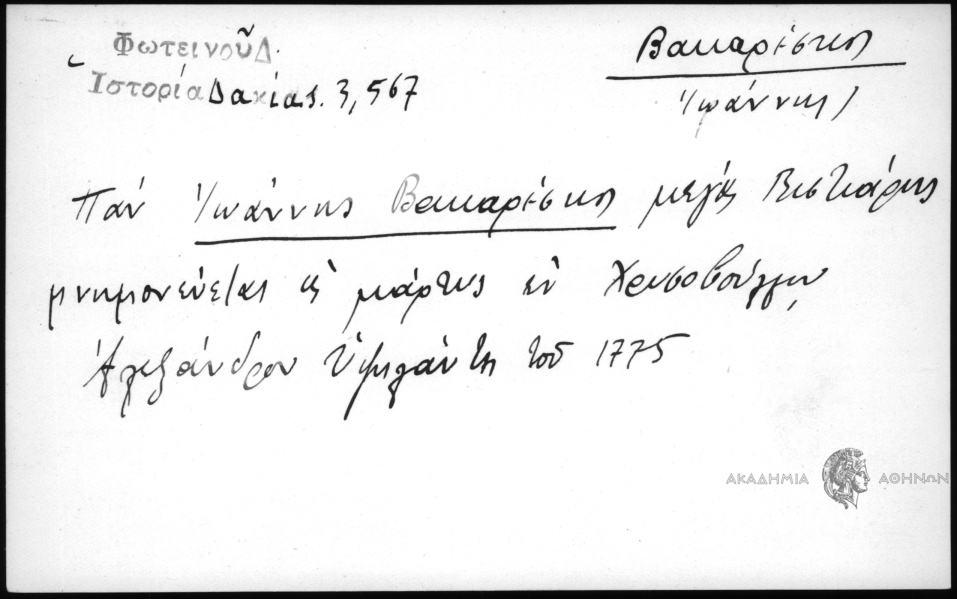 Φωτεινοῦ Δ.
Ἱστορία Δακίας. 3,567
Βακαρέσκος
Ἰωάννης
Πάν Ἰωάννης Βακαρέσκος μέγας Βιστιάρης
μνημονεύεται ὡς μάρτυς ἐν Χρυσοβούλλῳ
Ἀλεξάνδρου Ὑψηλάντη τοῦ 1775
ΑΚΑΔΗΜΙΑ ΑΘΗΝΩΝ